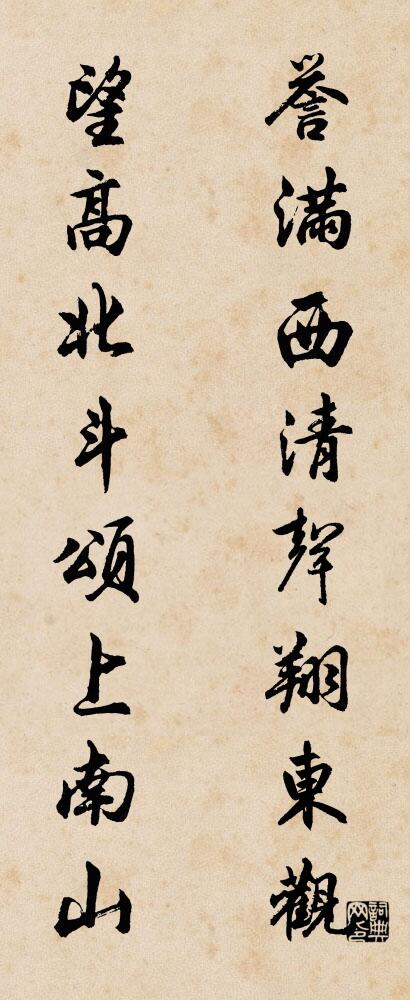 譽滿西清聲翔東觀
望高北斗頌上南山
詞典網